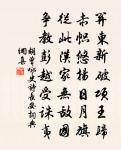 東新破項王歸
赤幟悠揚日月旗
從此漢家無敵國
爭教彭越受誅夷
胡曾咏史詩長安詞典
網集